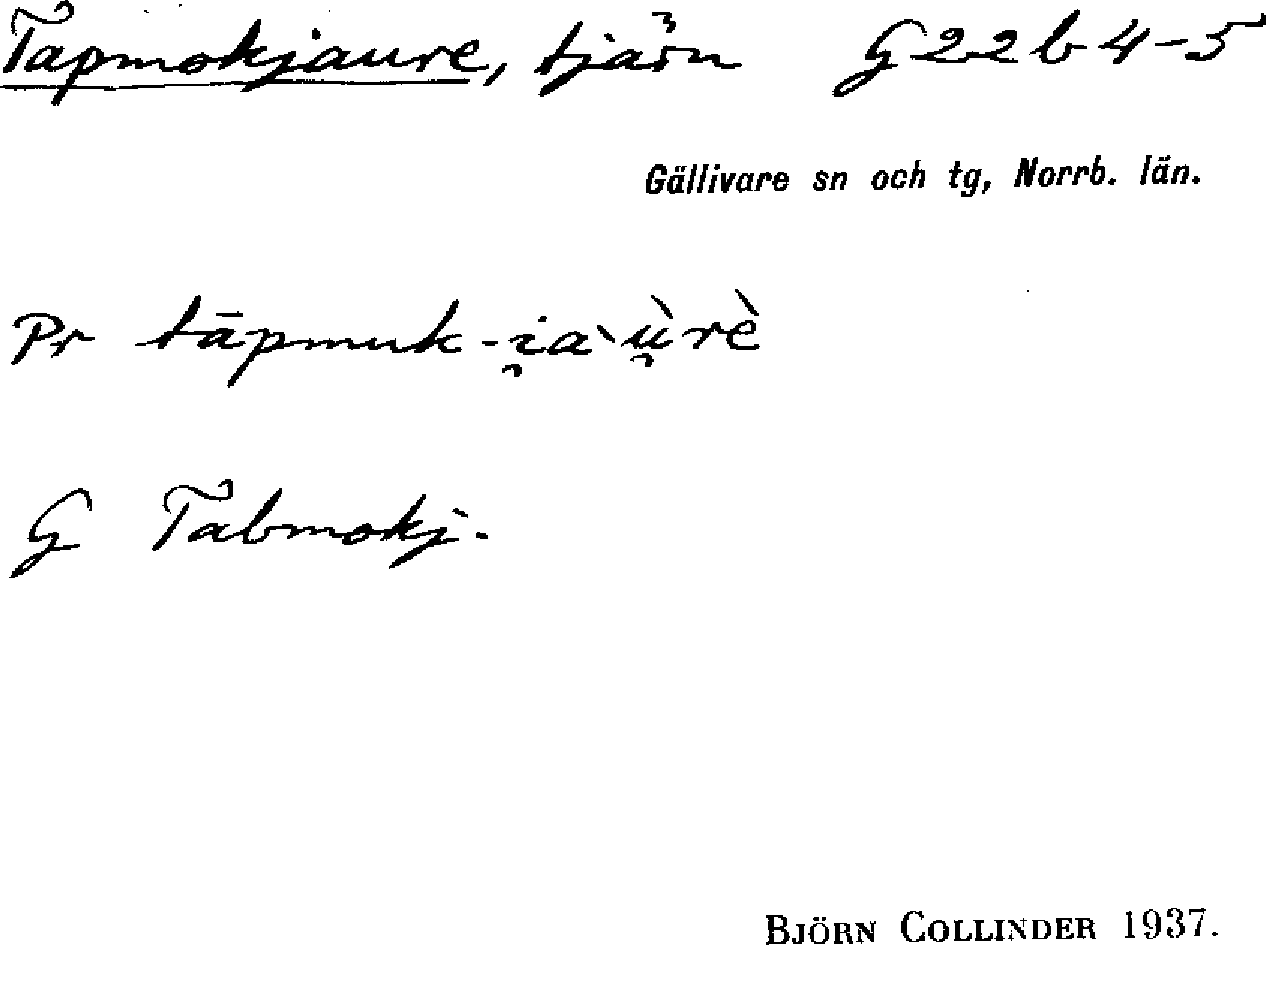 Tapmokjaure, tjärn G 22 b 4-5
Gällivare sn och tg, Norrb. län.
Pr tāpmuk-i̯a`ù̯rè
G Tabmokj.
BJÖRN COLLINDER 1937.